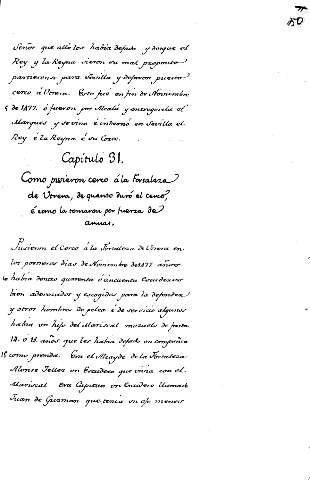 150
Señor que allo los habia dejado y aunque el
Rey y la Reyna vieron su mal proposito
partieronse para Sevilla y dejaron puesto
cerco á Utrera. Esto fué en fin de Noviembre
5 de 1477. é fueron por Alcalá y entregósela el
Marques y se vino é internó en Sevilla el
Rey é la Reyna é su Corte.
Capítulo 31.
Como pusieron cerco á la Fortaleza
de Utrera, de quanto duró el cerco,
é como la tomaron por fuerza de
armas.
Pusieron el Cerco á la Fortaleza de Utrera en
los postreros dias de Noviembre de 1477 años
10 habia dentro quarenta ó cincuenta Escuderos
bien aderezados y escogidos para la defender
y otros hombres de pelea é de servicio algunos
habia un hijo del Mariscal mozuelo de fasta
14. ó 15. años que les habia dejado en compañia
15 como prenda. Era el Alcayde de la Fortaleza
Alonso Tellez un Escudero que vivia con el
Mariscal Era Capitan un Escudero llamado
Juan de Guzman que tenia un ojo menos